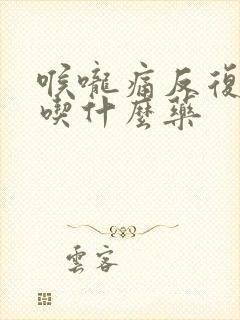 喉嚨痛反復
喫什麼藥
雲客